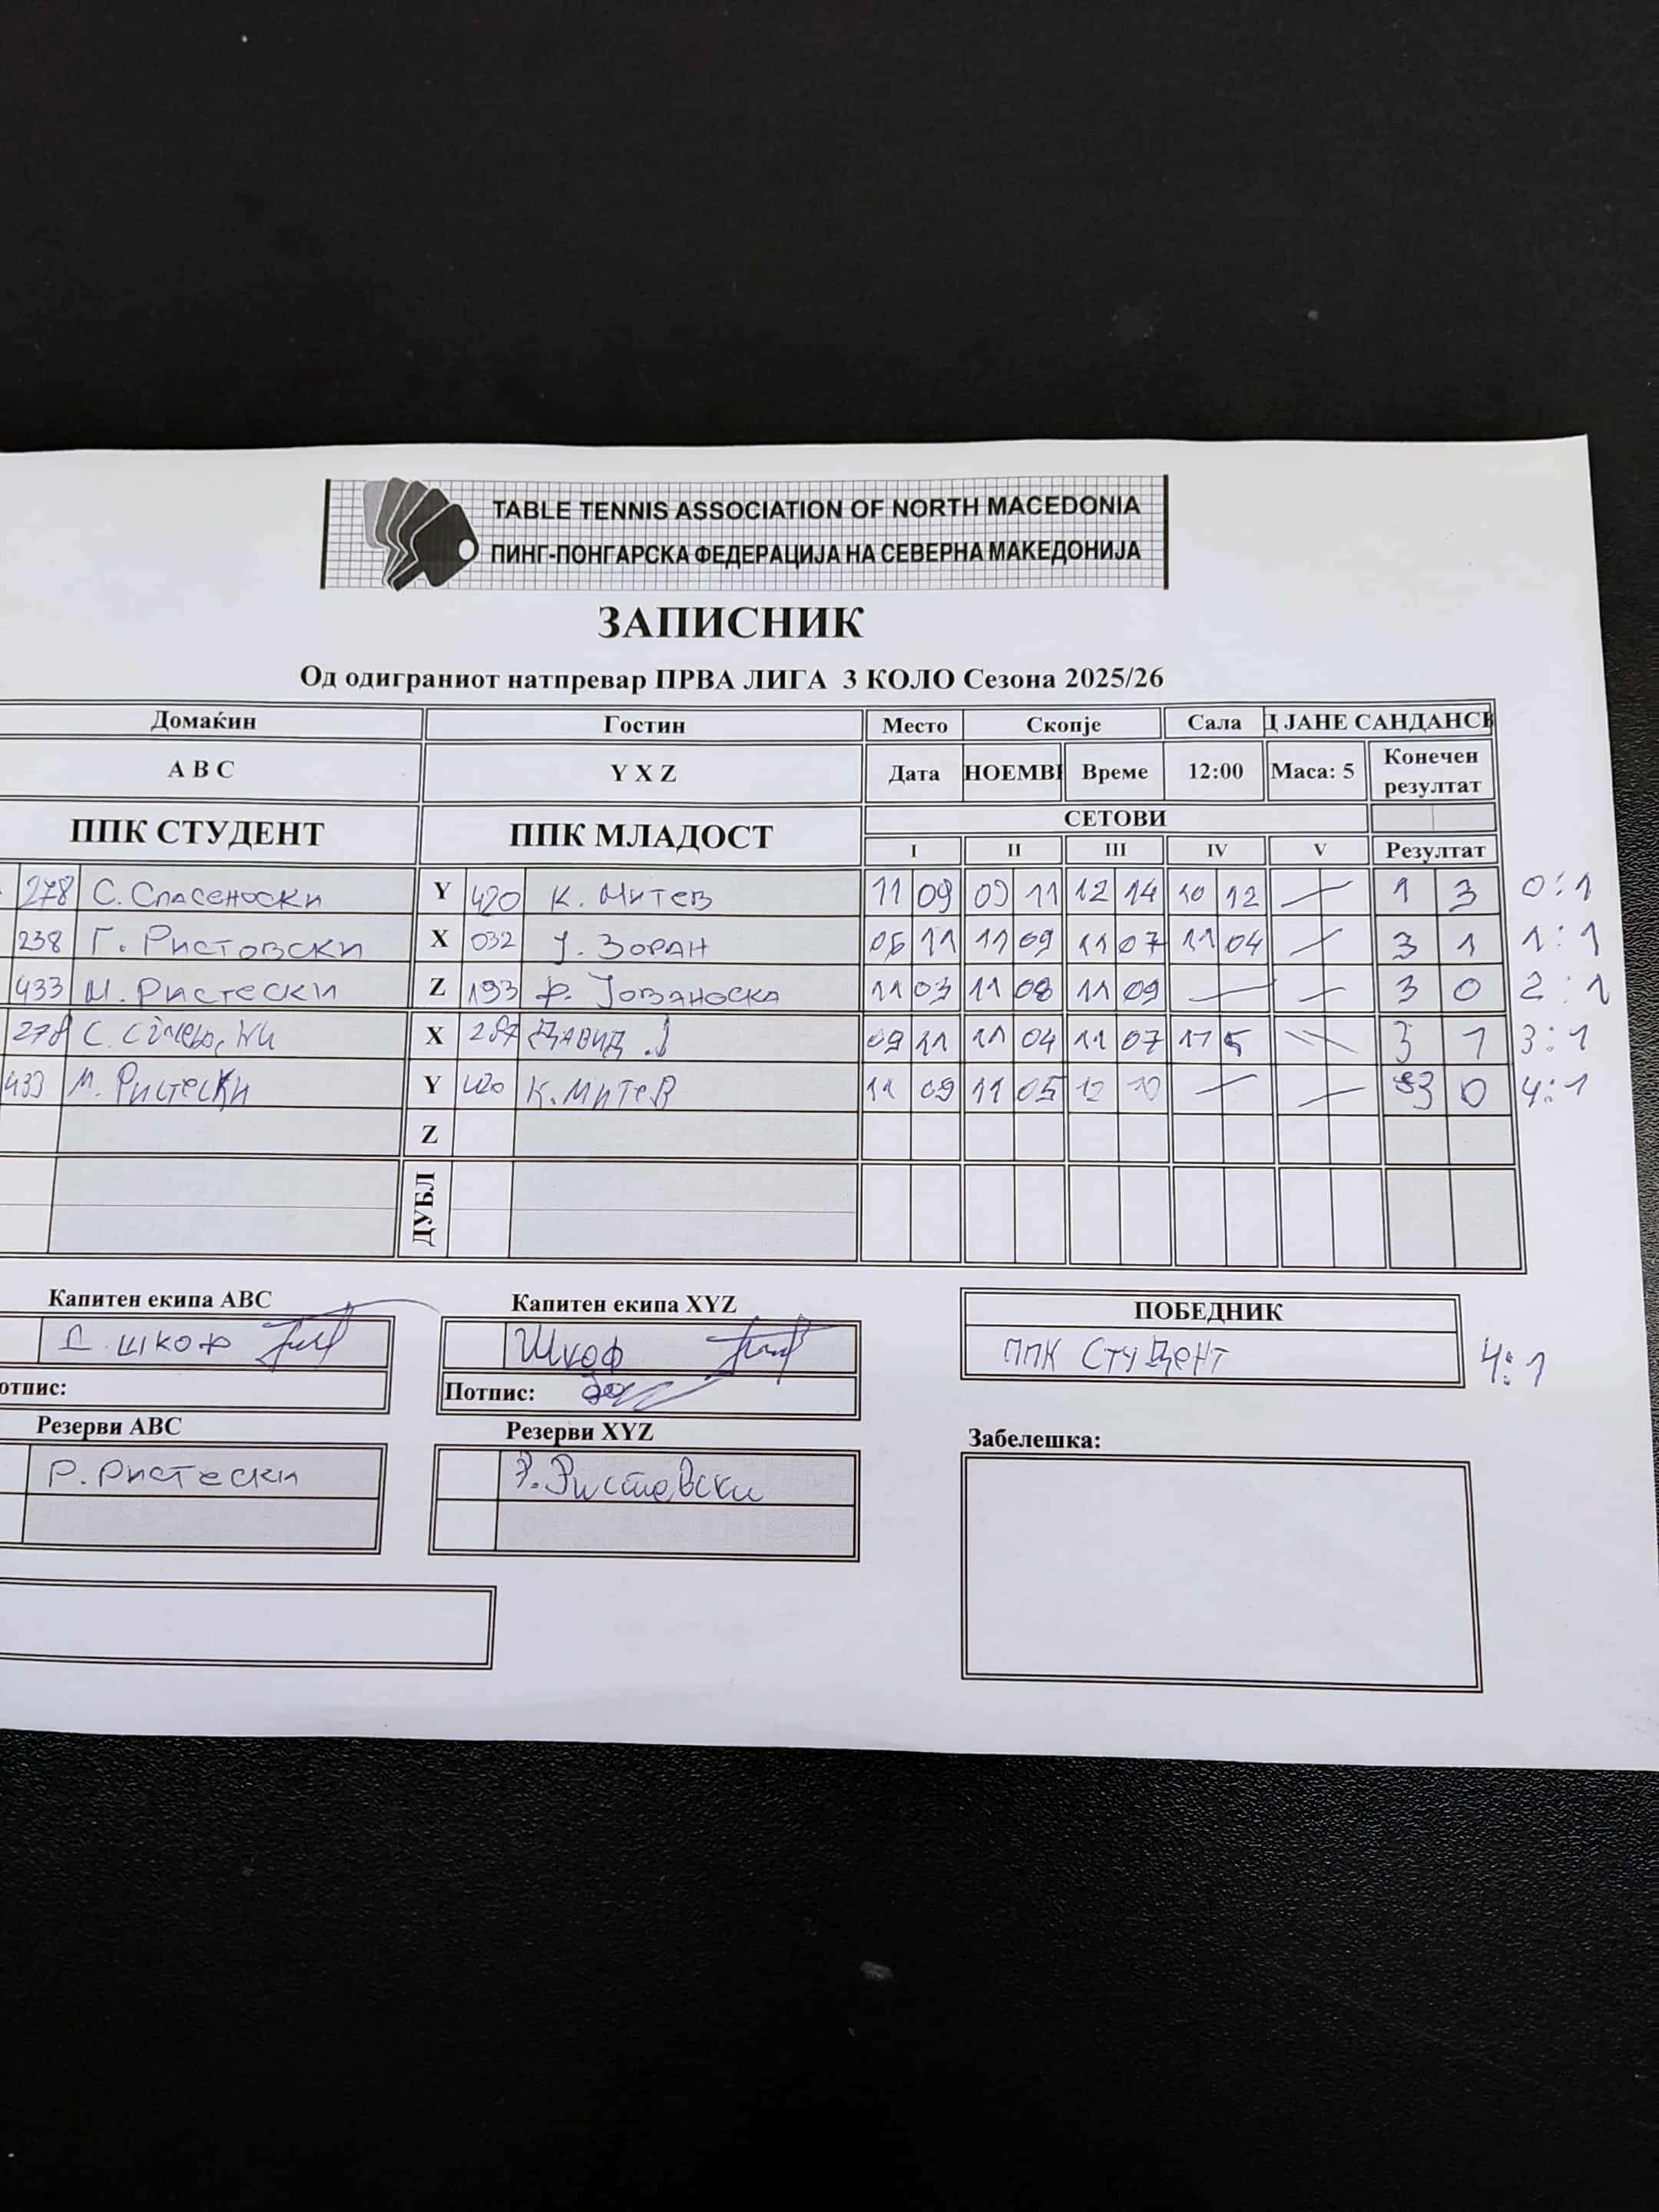 TABLE TENNIS ASSOCIATION OF NORTH MACEDONIA
ПИНГ-ПОНГАРСКА ФЕДЕРАЦИЈА НА СЕВЕРНА МАКЕДОНИЈА
ЗАПИСНИК
Од одиграниот натпревар ПРВА ЛИГА 3 КОЛО Сезона 2025/26
Домаќин Гостин Место Скопје Сала Д ЈАНЕ САНДАНСК
A B C Y X Z Дата НОЕМВР Време 12:00 Маса: 5 Конечен резултат
ППК СТУДЕНТ ППК МЛАДОСТ СЕТОВИ
I II III IV V Резултат
278 С. Спасеноски Y 420 К. Митев 11 09 09 11 12 14 10 12 1 3 0:1
238 Г. Ристовски X 032 Ј. Зоран 06 11 11 09 11 07 11 04 3 1 1:1
433 М. Ристески Z 193 Ф. Јованоска 11 03 11 08 11 09 3 0 2:1
278 С. X 287 Давид Ј 09 11 11 04 11 07 11 5 3 1 3:1
433 М. Ристески Y 420 К. Митев 11 09 11 05 12 10 3 0 4:1
Z
ДУБЛ
Капитен екипа ABC Капитен екипа XYZ ПОБЕДНИК
Д. Шкоф Шкоф ППК Студент 4:1
отпис: Потпис:
Резерви ABC Резерви XYZ Забелешка:
Р. Ристески Р. Ристевски